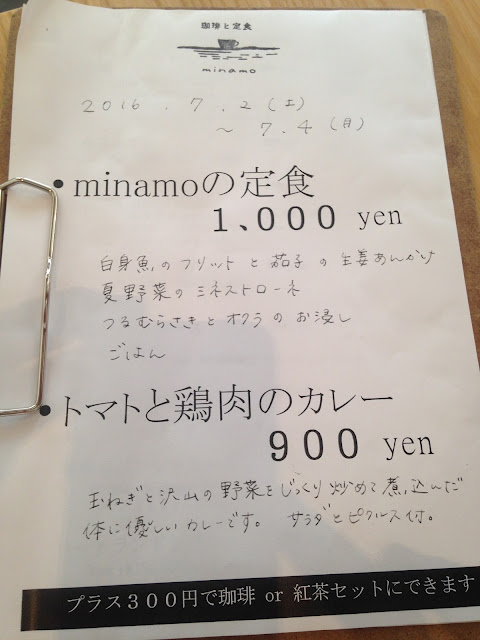 珈琲と定食
minamo
2016.7.2(土)
～7.4(月)
・minamoの定食
1、000 yen
白身魚のフリットと茄子の生姜あんかけ
夏野菜のミネストローネ
つるむらさきとオクラのお浸し
ごはん
・トマトと鶏肉のカレー
900 yen
玉ねぎと沢山の野菜をじっくり炒めて煮込んだ
体に優しいカレーです。 サラダとピクルス付。
プラス300円で珈琲 or 紅茶セットにできます